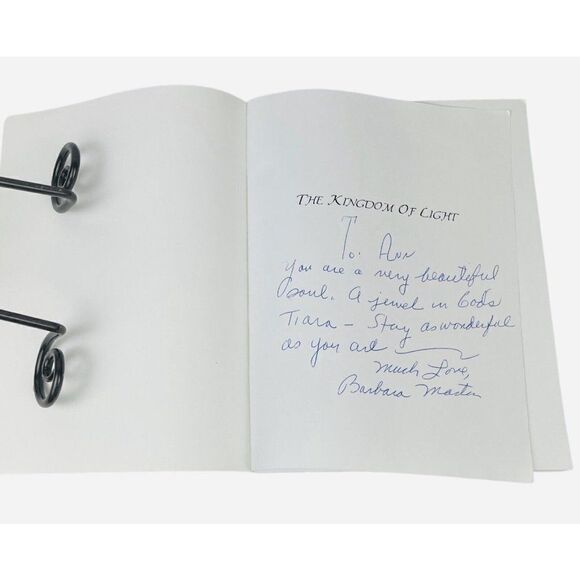 THE KINGDOM OF LIGHT
To: Ann
You are a very beautiful
soul. A jewel in God's
Tiara - Stay as wonderful
as you are
Much Love,
Barbara Martin